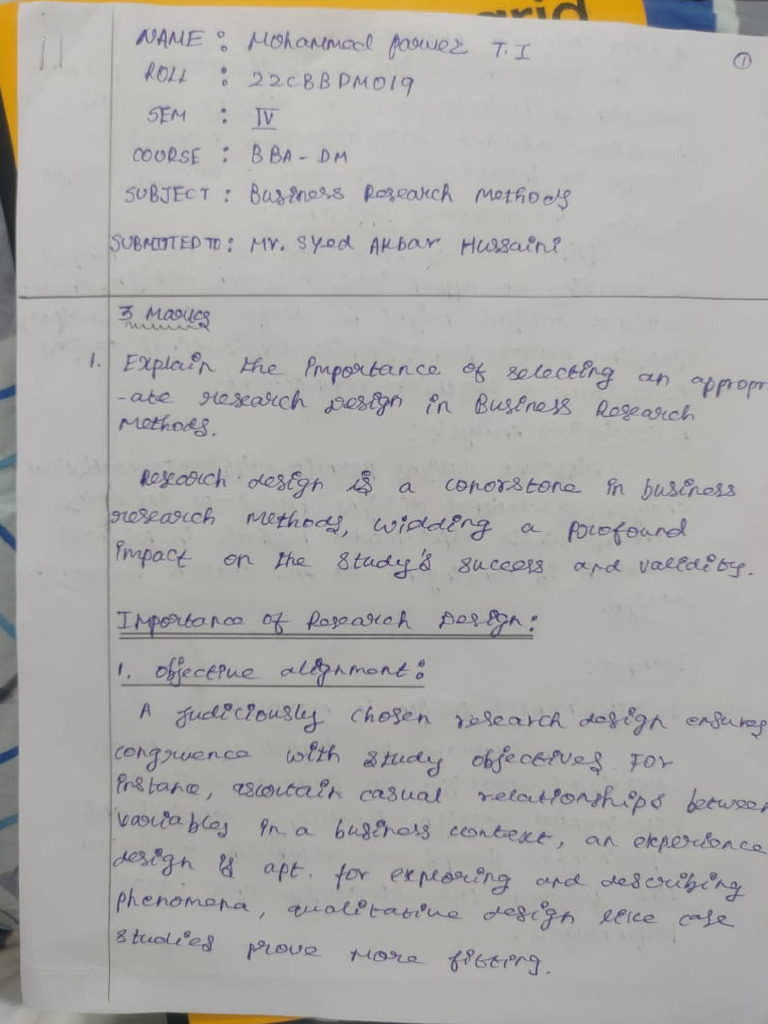 grid
11
1
NAME : Mohammod Parwez T.I
ROLL : 22CBBDM019
SEM : IV
COURSE : BBA - DM
SUBJECT : Business Research Methods
SUBMITTED TO : Mr. Syed Akbar Hussaini
3 Marks
1. Explain the importance of selecting an appropr
-ate research Design in Business Research
Methods.
Research design is a conorstone in business
research methods, widding a profound
impact on the study's success and validity.
Importance of Research Design:
1. Objective alignment:
A judiciously chosen research design ensures
congruence with study objectives For
instane, ascertain casual relationships between
variables in a business context, an experience
design is apt. for exploring and describing
phenomena, qualitative design like case
studies prove more fitting.